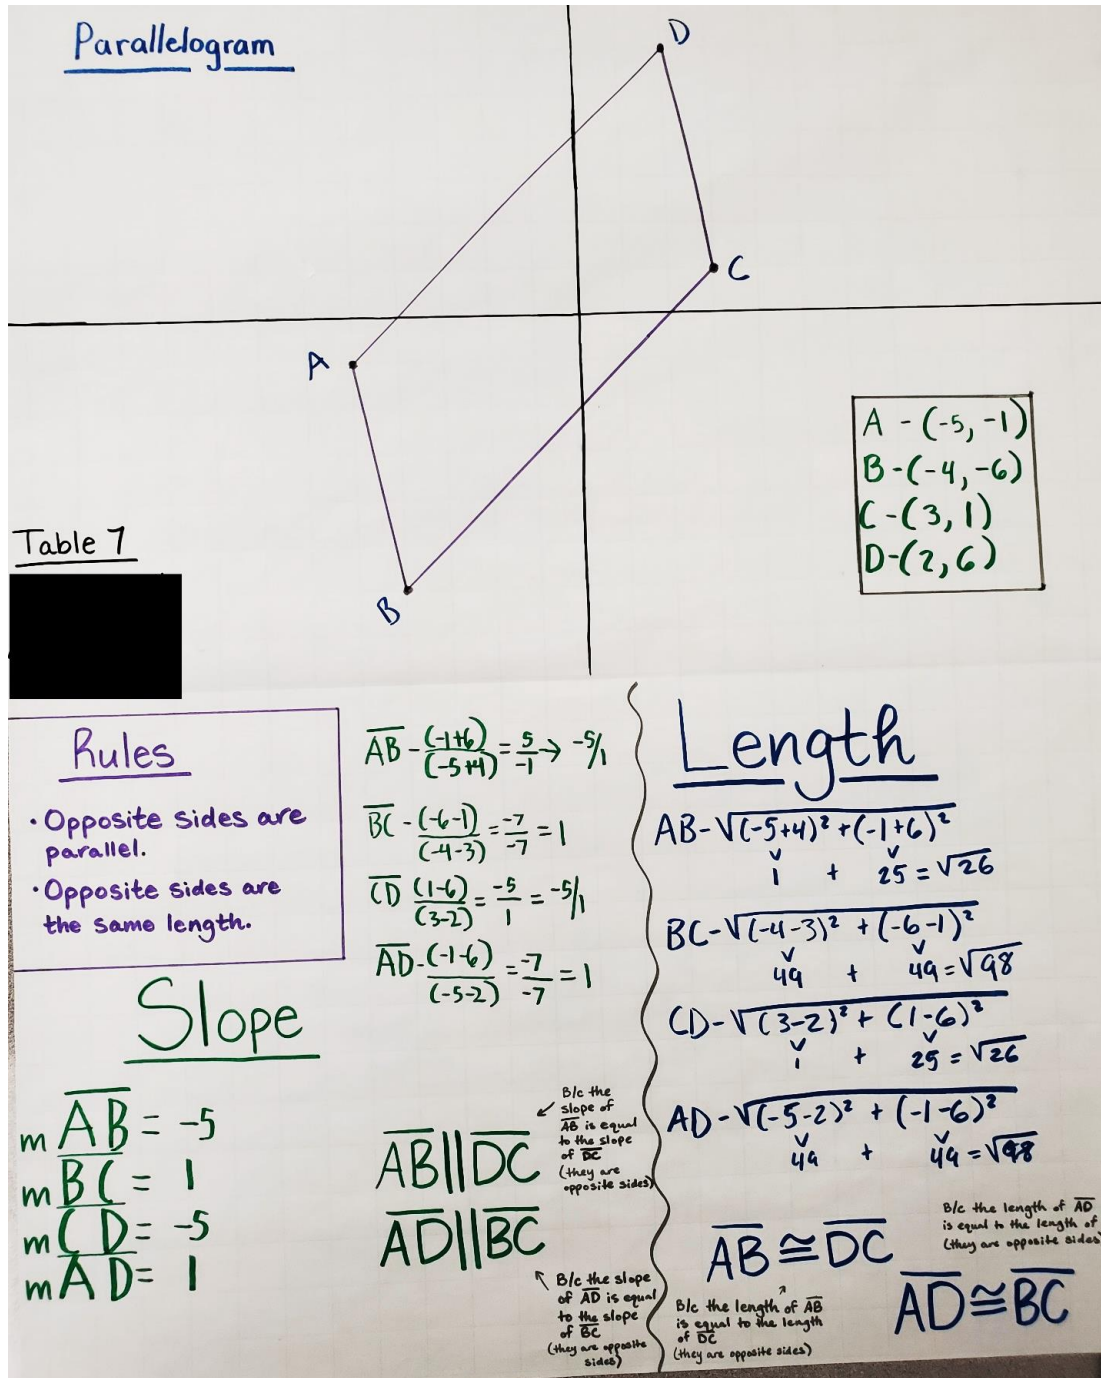 Parallelogram
D
C
A
B
A - (-5, -1)
B - (-4, -6)
C - (3, 1)
D - (2, 6)
Table 7
Rules
• Opposite sides are
parallel.
• Opposite sides are
the same length.
Slope
m AB = -5
m BC = 1
m CD = -5
m AD = 1
AB - (-1+6)/(-5+4) = 5/-1 → -5/1
BC - (-6-1)/(-4-3) = -7/-7 = 1
CD (1-6)/(3-2) = -5/1 = -5/1
AD - (-1-6)/(-5-2) = -7/-7 = 1
B/c the
slope of
AB is equal
to the slope
of DC
(they are
opposite sides)
AB || DC
AD || BC
B/c the slope
of AD is equal
to the slope
of BC
(they are opposite
sides)
Length
AB - √(-5+4)² + (-1+6)²
1 + 25 = √26
BC - √(-4-3)² + (-6-1)²
49 + 49 = √98
CD - √(3-2)² + (1-6)²
1 + 25 = √26
AD - √(-5-2)² + (-1-6)²
49 + 49 = √98
AB ≅ DC
B/c the length of AB
is equal to the length
of DC
(they are opposite sides)
B/c the length of AD
is equal to the length of
(they are opposite sides
AD ≅ BC